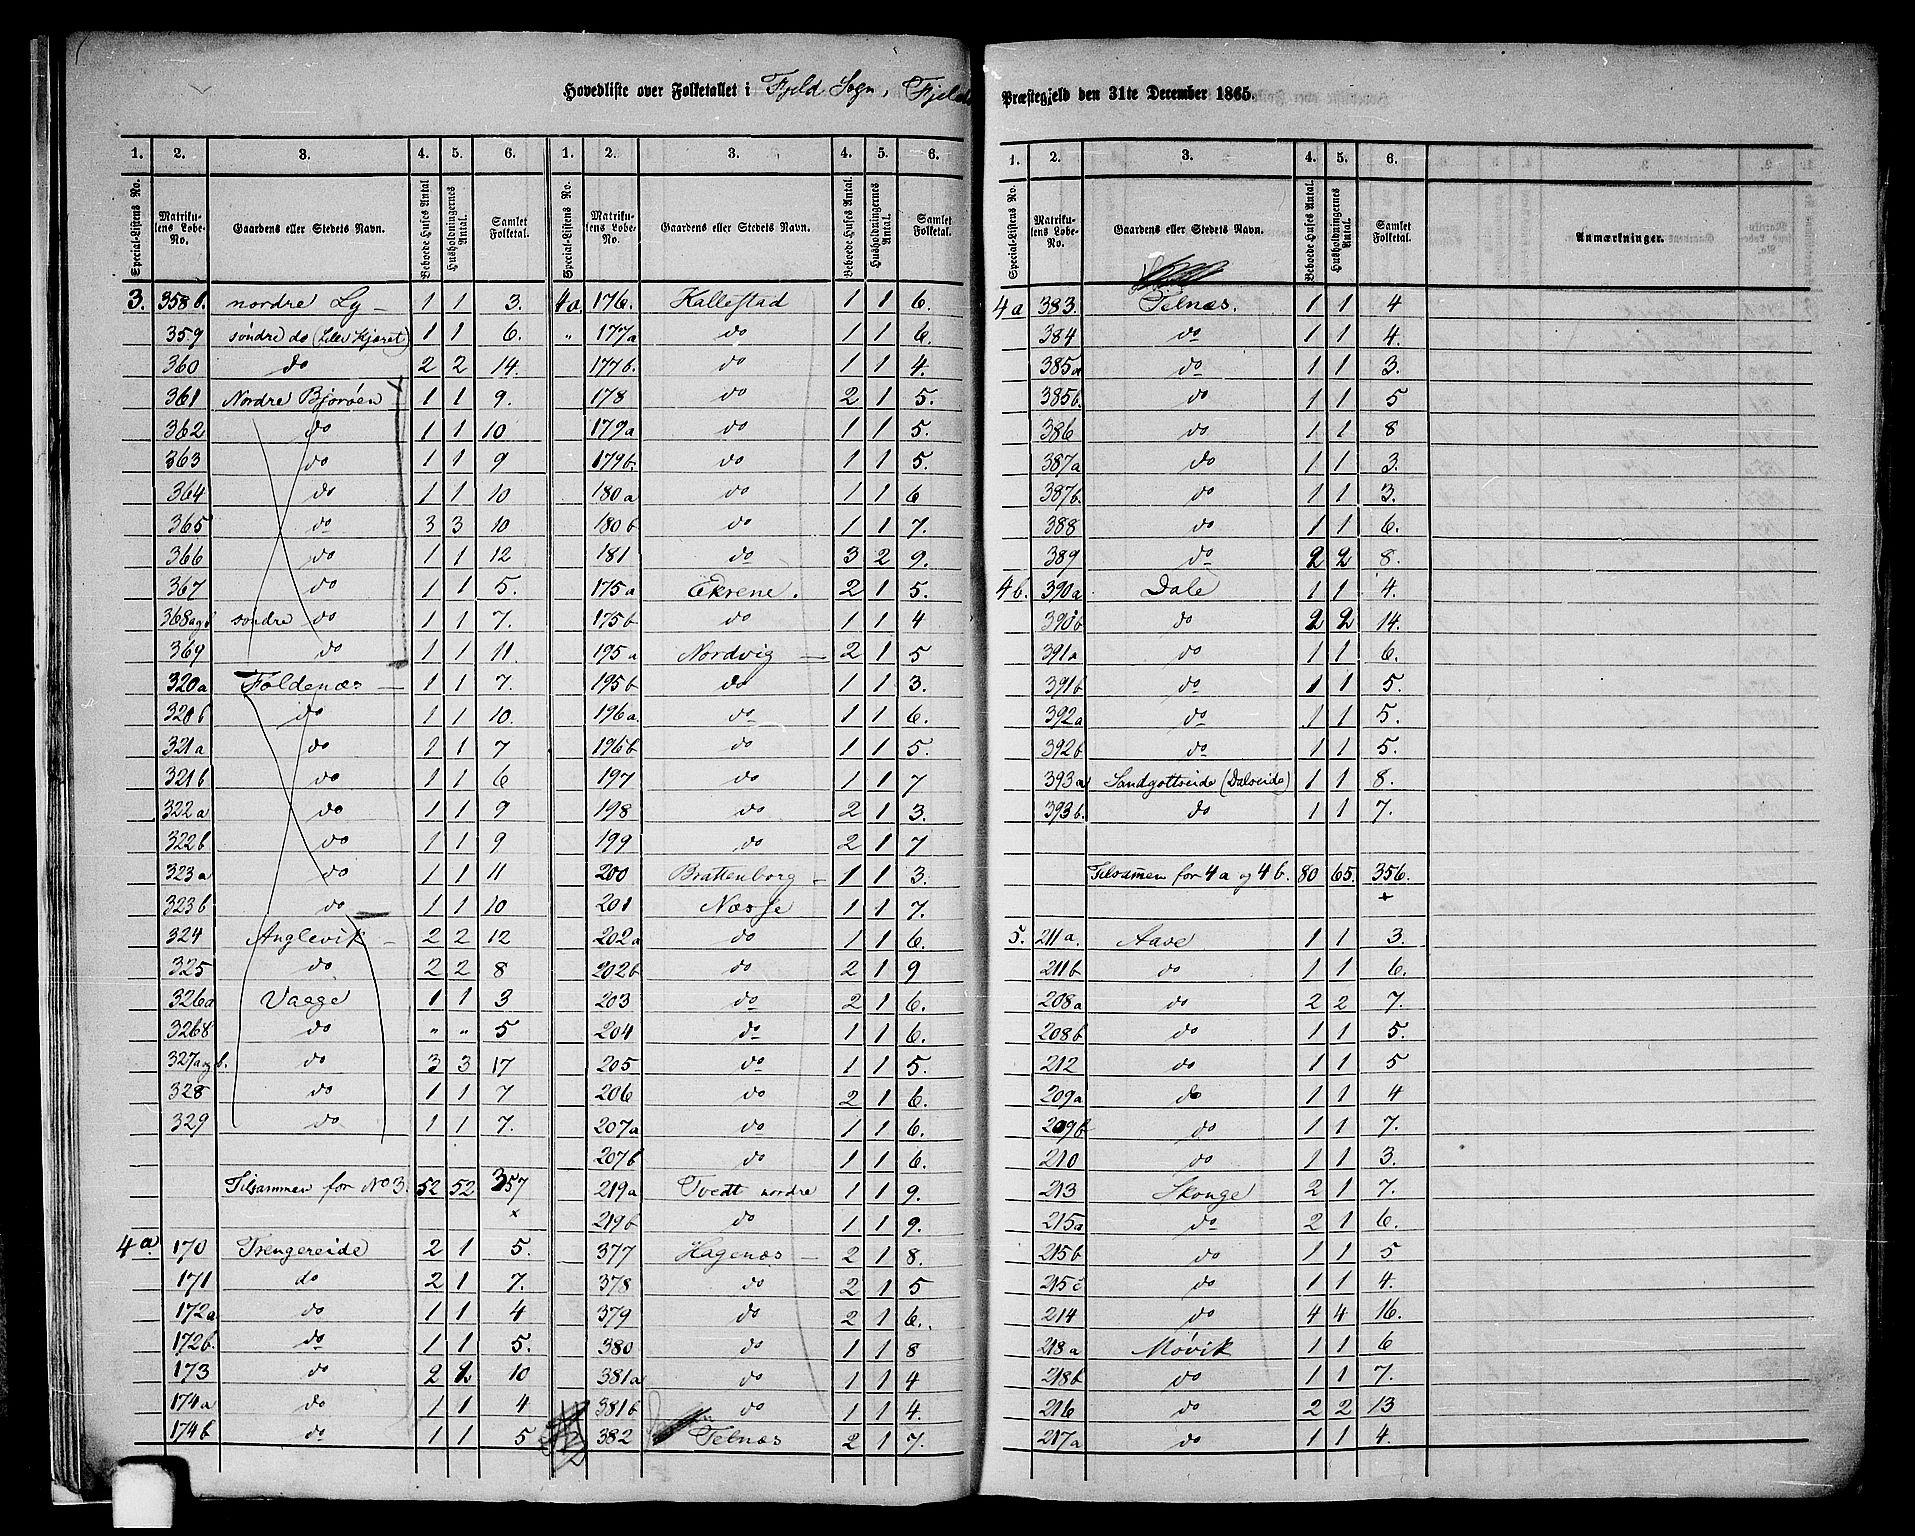 Hovedliste over Folketallet i Fjeld Sogn, Fjeld Præstegjeld den 31te December 1865.
1. 2. 3. 4. 5. 6.
Special-Listens No. Matrikulens Løbe-No. Gaardens eller Stedets Navn. Beboede Huses Antal Husholdningernes Antal. Samlet Folketal.
3. 358b. nordre Ly — 1 1 3.
359 søndre do (Lille Kjæret) 1 1 6.
360 do 2 2 14.
361 Nordre Bjorøen 1 1 9.
362 do 1 1 10
363 do 1 1 9
364 do 1 1 10
365 do 3 3 10
366 do 1 1 12
367 do 1 1 5.
368a søndre do 1 1 7.
369 do 1 1 11.
320a Foldenæs — 1 1 7.
320b do 1 1 10.
321a do 1 1 7
321b do 1 1 6
322a do 1 1 9
322b do 1 1 9
323a do 1 1 11
323b do 1 1 10
324 Anglevik — 2 2 12
325 do 2 2 8
326a Vaage 1 1 3
326b do " " 5
327a og b. do 3 3 17
328 do 1 1 7
329 do 1 1 7.
Tilsammen for No 3. 52 52 357
x
4a 170 Trengereide 2 1 5.
171 do 2 1 7.
172a do 1 1 4
172b. do 1 1 5.
173 do 2 2 10
174a do 1 1 4
174b do 1 1 5
1. 2. 3. 4. 5. 6.
Special-Listens No. Matrikulens Løbe-No. Gaardens eller Stedets Navn. Beboede Huses Antal. Husholdningernes Antal. Samlet Folketal.
4a. 176. Kallestad 1 1 6.
" 177a do 1 1 6.
177b. do 1 1 4.
178 do 2 1 5.
179a do 1 1 5.
179b. do 1 1 5.
180a do 1 1 6
180b do 1 1 7.
181 do 3 2 9.
175a Ekrene. 2 1 5.
175b do 1 1 4
195a Nordvig — 2 1 5
195b do 1 1 3.
196a do 1 1 6.
196b do 1 1 5.
197 do 1 1 7
198 do 2 1 3.
199 do 2 1 7
200 Brattenborg — 1 1 3.
201 Næsje 1 1 7.
202a do 1 1 6.
202b do 2 1 9
203 do 2 1 6.
204 do 1 1 6.
205 do 1 1 5.
206 do 2 1 6.
207a do 1 1 6.
207b do 1 1 6.
219a Tvedt nordre 1 1 9.
219b do 1 1 9.
377 Hagenæs — 2 1 8.
378 do 2 1 5
379 do 2 1 6.
380 do 1 1 8
381a do 1 1 4
381b do 1 1 4.
382 Telnæs 2 1 7.
1. 2. 3. 4. 5. 6.
Special-Listens No. Matrikulens Løbe-No. Gaardens eller Stedets Navn. Beboede Huses Antal. Husholdningernes Antal. Samlet Folketal. Anmærkninger.
4a 383. Telnæs. 1 1 4
384 do 1 1 4.
385a do 1 1 3.
385b. do 1 1 5
386 do 1 1 8
387a do 1 1 3.
387b. do 1 1 3.
388 do 1 1 6.
389 do 2 2 8.
4b. 390a Dale 1 1 4.
390b do 2 2 14.
391a do 1 1 6.
391b do 1 1 5.
392a do 1 1 5.
392b do 1 1 5.
393a Sandgottseide (Dalseide) 1 1 8.
393b. do 1 1 7.
Tilsammen for 4a og 4b. 80 65. 356.
+
5. 211a. Aase 1 1 3.
211b do 1 1 6.
208a do 2 2 7.
208b do 1 1 5.
212 do 1 1 5
209a do 1 1 4
209b do 1 1 7.
210 do 1 1 3.
213 Skonge 2 1 7.
215a do 2 1 6.
215b do 1 1 5
215c do 1 1 4.
214 do 4 4 16.
218a Møvik 1 1 6
218b do 1 1 7.
216 do 2 2 13
217a do 1 1 4.